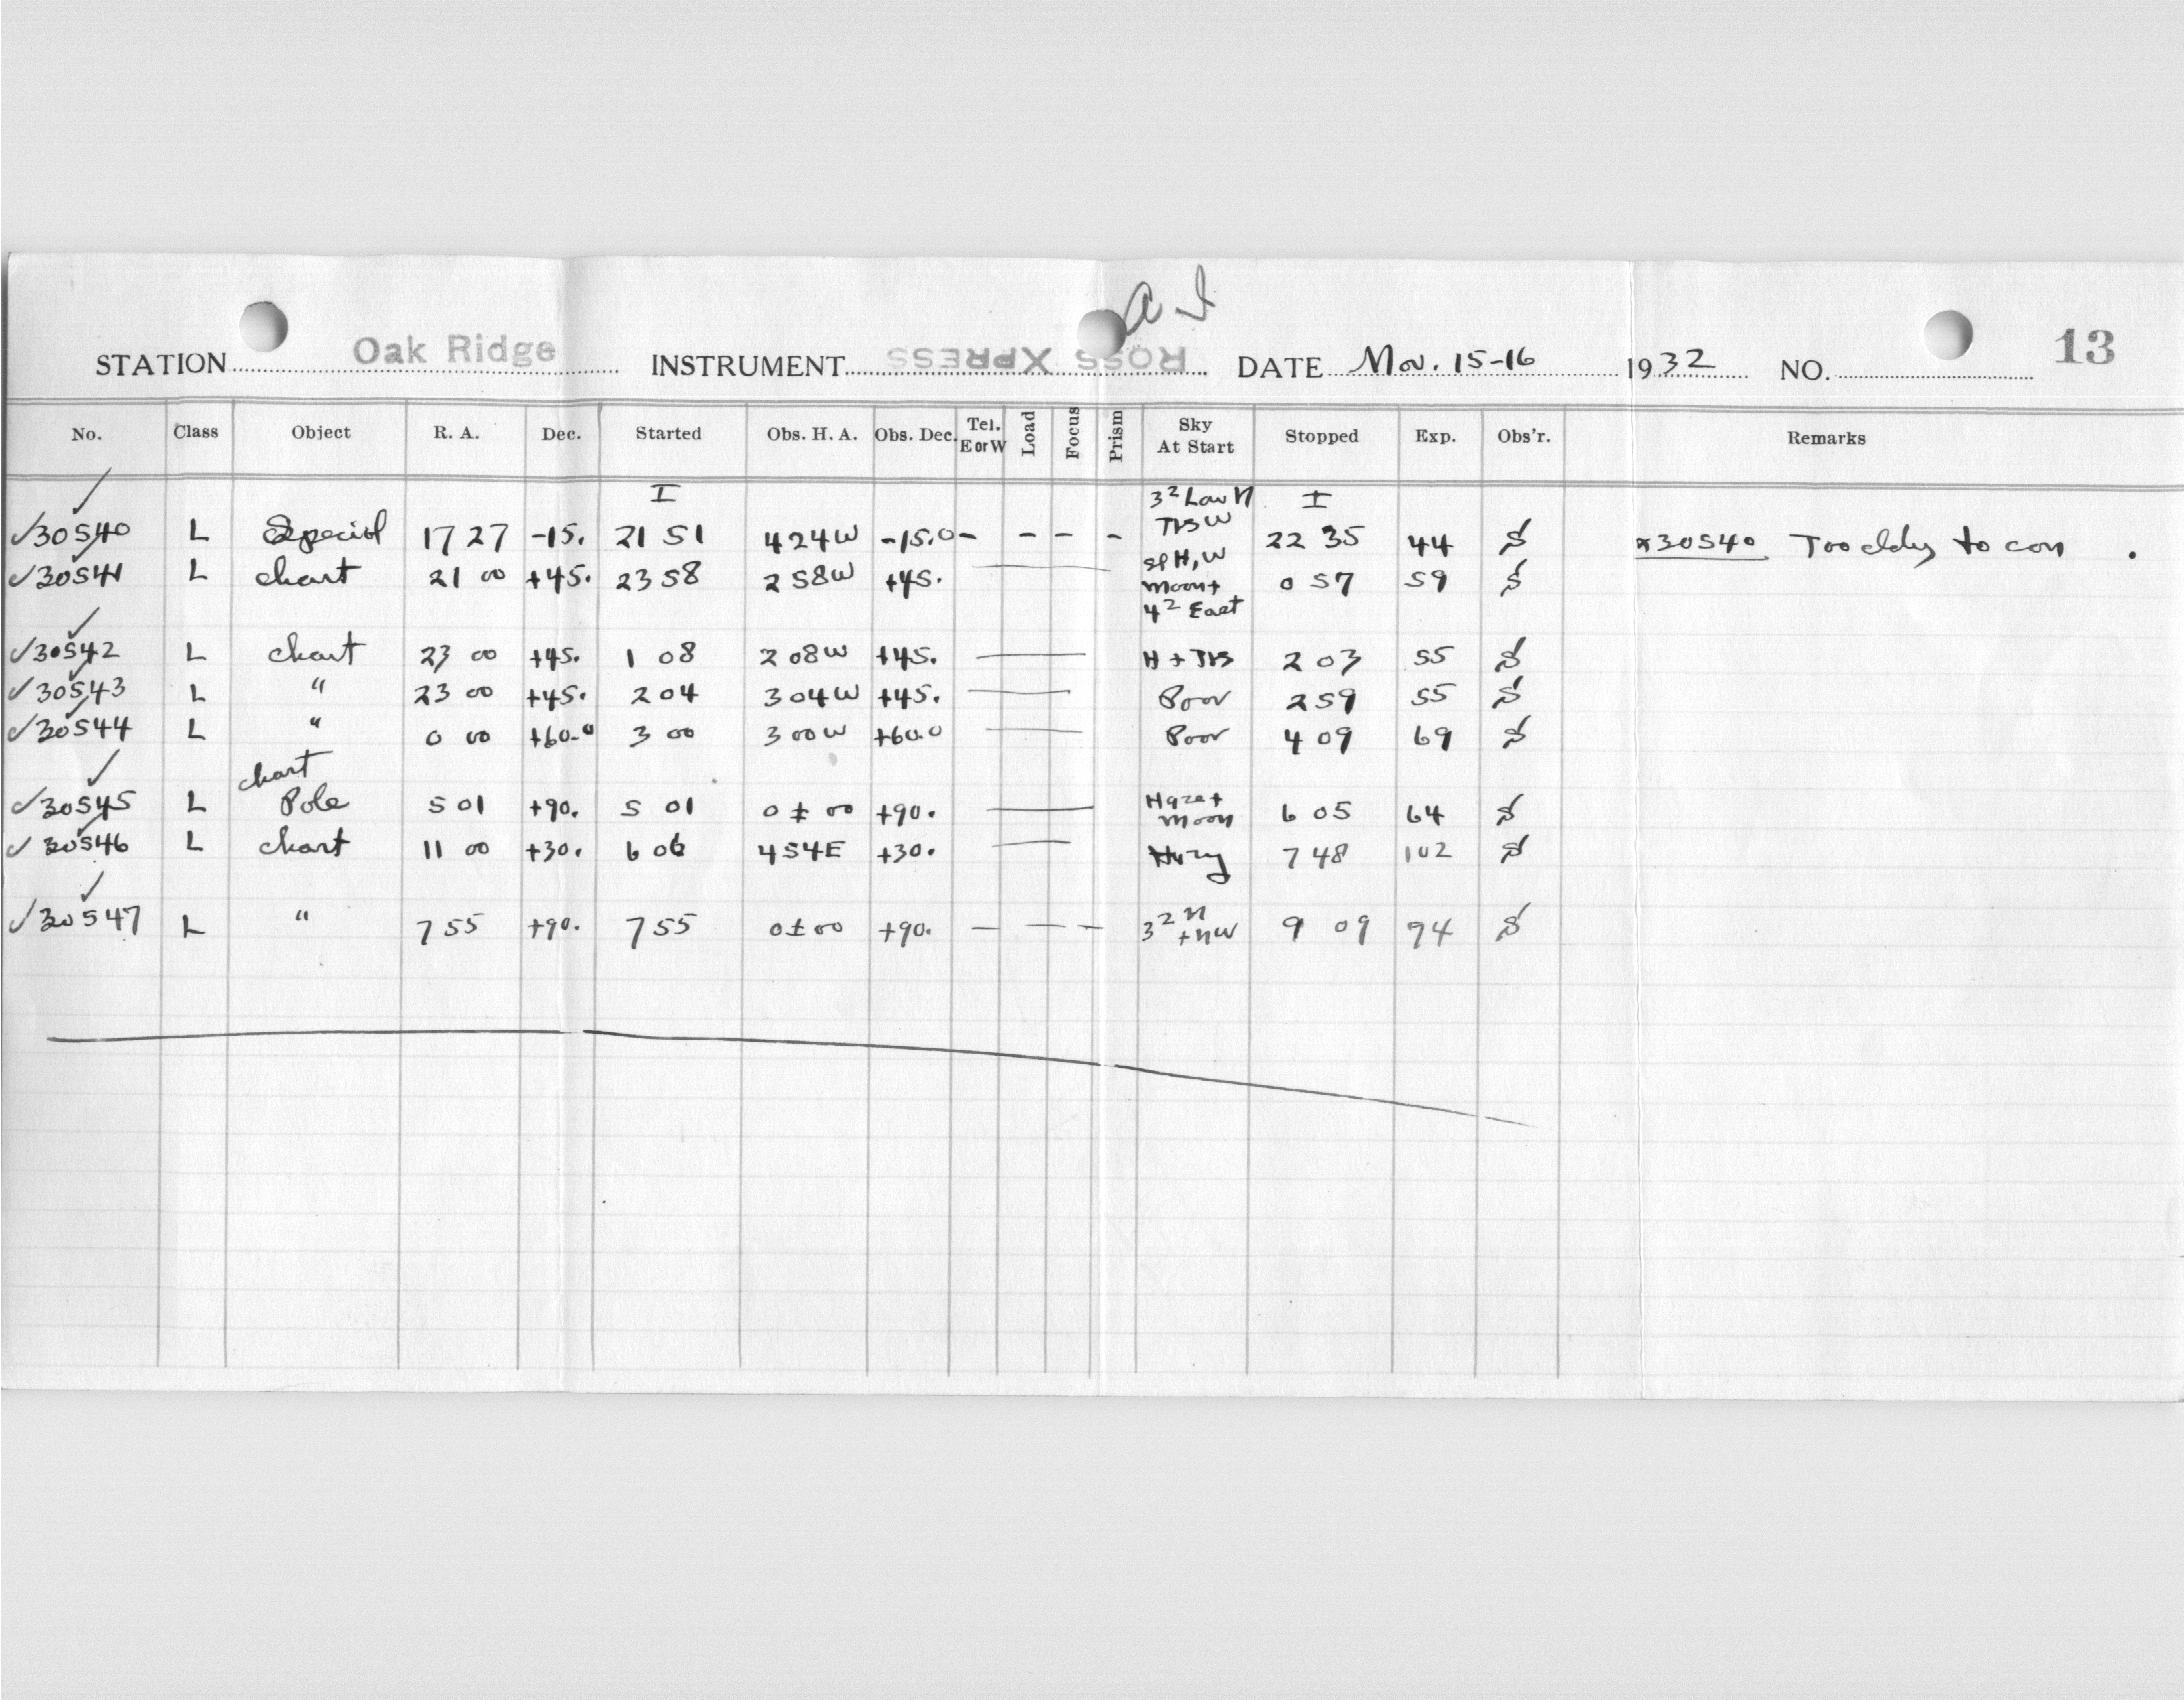 a I
STATION Oak Ridge INSTRUMENT ROSS XPRESS DATE Nov. 15-16 1932 NO. 13
No. Class Object R. A. Dec. Started Obs. H. A. Obs. Dec. Tel. E or W Load Focus Prism Sky At Start Stopped Exp. Obs'r. Remarks
I 3² Low N I
✓30540 L Special 17 27 -15. 21 51 4 24W -15.0 - - - - THS W 22 35 44 S *30540 Too cldy to con .
✓30541 L chart 21 00 +45. 23 58 2 58W +45. sp H, W moon + 4² East 0 57 59 S
✓30542 L chart 23 00 +45. 1 08 2 08W +45. H + THS 2 03 55 S
✓30543 L " 23 00 +45. 2 04 3 04W +45. Poor 2 59 55 S
✓30544 L " 0 00 +60.0 3 00 3 00W +60.0 Poor 4 09 69 S
✓30545 L chart Pole 5 01 +90. 5 01 0 ± 00 +90. Haze + moon 6 05 64 S
✓30546 L chart 11 00 +30. 6 06 4 54E +30. Hazy 7 48 102 S
✓30547 L " 7 55 +90. 7 55 0 ± 00 +90. - - - 3² N + NW 9 09 94 S